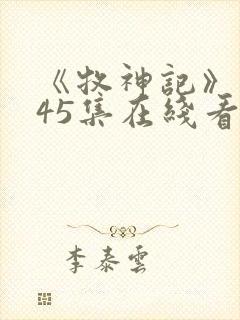 《牧神記》
45集在綫看
李泰雲